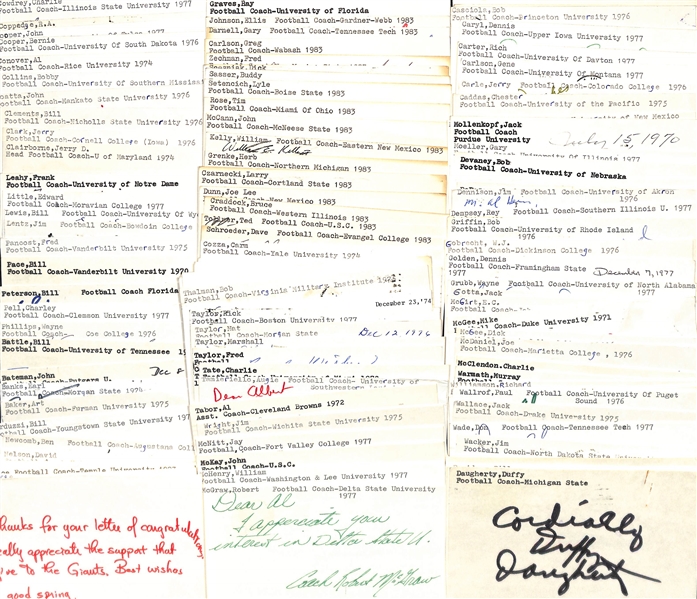 Cowdrey, Charlie
Football Coach-Illinois State University 1977
Cooper, John
Cooper, Bernie
Football Coach-University Of South Dakota 1976
Conover, Al
Football Coach-Rice University 1974
Collins, Bobby
Football Coach-University of Southern Mississi
Football Coach-Mankato State University 1976
Clements, Bill
Football Coach-Nicholls State University 1976
Clark, Jerry
Football Coach-Cornell College (Iowa) 1976
Claiborne, Jerry D.
Head Football Coach-U of Maryland 1974
Leahy, Frank
Football Coach-University of Notre Dame
Little, Edward
Football Coach-Moravian College 1977
Lewis, Bill Football Coach-University Of Wy
Lentz, Jim Football Coach-Bowdoin College
Pancoast, Fred
Football Coach-Vanderbilt University 1975
Pace, Bill
Football Coach-Vanderbilt University 1970
Peterson, Bill Football Coach Florida
Pell, Charley
Football Coach-Clemson University 1977
Phillips, Wayne
Football Coach- Coe College 1976
Battle, Bill
Football Coach-University of Tennessee
Bateman, John
Banks, Earl
Football Coach-Morgan State 1976
Baker, Art
Football Coach-Furman University 1975
Football Coach-Youngstown State University 1976
Newcomb, Ben Football Coach-Augustana Coll
Nelson, David
Thanks for your letter of congratulations
really appreciate the support that
give to the Giants. Best wishes
good spring.
Graves, Ray
Football Coach-University of Florida
Johnson, Ellis Football Coach-Gardner-Webb 1983
Darnell, Gary Football Coach-Tennessee Tech 1983
Carlson, Greg
Football Coach-Wabash 1983
Zechman, Fred
Sasser, Buddy
Setencich, Lyle
Football Coach-Boise State 1983
Rose, Tim
Football Coach-Miami Of Ohio 1983
McCann, John
Football Coach-McNeese State 1983
Kelly, William Football Coach-Eastern New Mexico 1983
Grenke, Herb
Football Coach-Northern Michigan 1983
Czarnecki, Larry
Football Coach-Cortland State 1983
Dunn, Joe Lee
Football Coach-New Mexico 1983
Craddock, Bruce
Football Coach-Western Illinois 1983
Tollner, Ted Football Coach-U.S.C. 1983
Schroeder, Dave Football Coach-Evangel College 1983
Cozza, Carm
Football Coach-Yale University 1974
Thalman, Bob
Football Coach-Virginia Military Institute 1972
December 23,'74
Taylor, Rick
Football Coach-Boston University 1977
Taylor, Nat
Football Coach-Morgan State Dec 12, 1976
Taylor, Marshall
Taylor, Fred
Tate, Charlie
Football Coach-University of
Southwestern
Dear Albert
Tabor, Al
Asst. Coach-Cleveland Browns 1972
Wright, Jim
Football Coach-Wichita State University 1975
McNitt, Jay
Football Coach-Fort Valley College 1977
McKay, John
Football Coach-U.S.C.
McHenry, William
Football Coach-Washington & Lee University 1977
McGraw, Robert Football Coach-Delta State University
1977
Dear Al
I appreciate your
interest in Delta State U.
Coach Robert McGraw
Casciola, Bob
Football Coach-Princeton University 1976
Caryl, Dennis
Football Coach-Upper Iowa University 1977
Carter, Rich
Football Coach-University Of Dayton 1977
Carlson, Gene
Football Coach-University Of Montana 1977
Carle, Jerry Football Coach-Colorado College 1976
Caddas, Chester
Football Coach-University of the Pacific 1975
Mollenkopf, Jack
Football Coach
Purdue University
July 15, 1970
Moeller, Gary
Football Coach-University Of Illinois 1977
Devaney, Bob
Football Coach-University of Nebraska
Dennison, Jim Football Coach-University of Akron
1976
Dempsey, Rey Football Coach-Southern Illinois U. 1977
Griffin, Bob
Football Coach-University of Rhode Island
1976
Gobrecht, W.J.
Football Coach-Dickinson College 1976
Golden, Dennis
Football Coach-Framingham State December 7, 1977
1977
Grubb, Wayne Football Coach-University of North Alabama
Gotta, Jack
McGirt, E.C.
McGee, Mike
Football Coach-Duke University 1971
McGee, Dick
McDaniel, Joe
Football Coach-Marietta College, 1976
McClendon, Charlie
Warmath, Murray
Williamson, Richard
Wallrof, Paul Football Coach-University Of Puget
Sound 1976
Wallace, Jack
Football Coach-Drake University 1975
Wade, Don Football Coach-Tennessee Tech 1977
Wacker, Jim
Football Coach-North Dakota State
Daugherty, Duffy
Football Coach-Michigan State
Cordially
Duffy
Daugherty